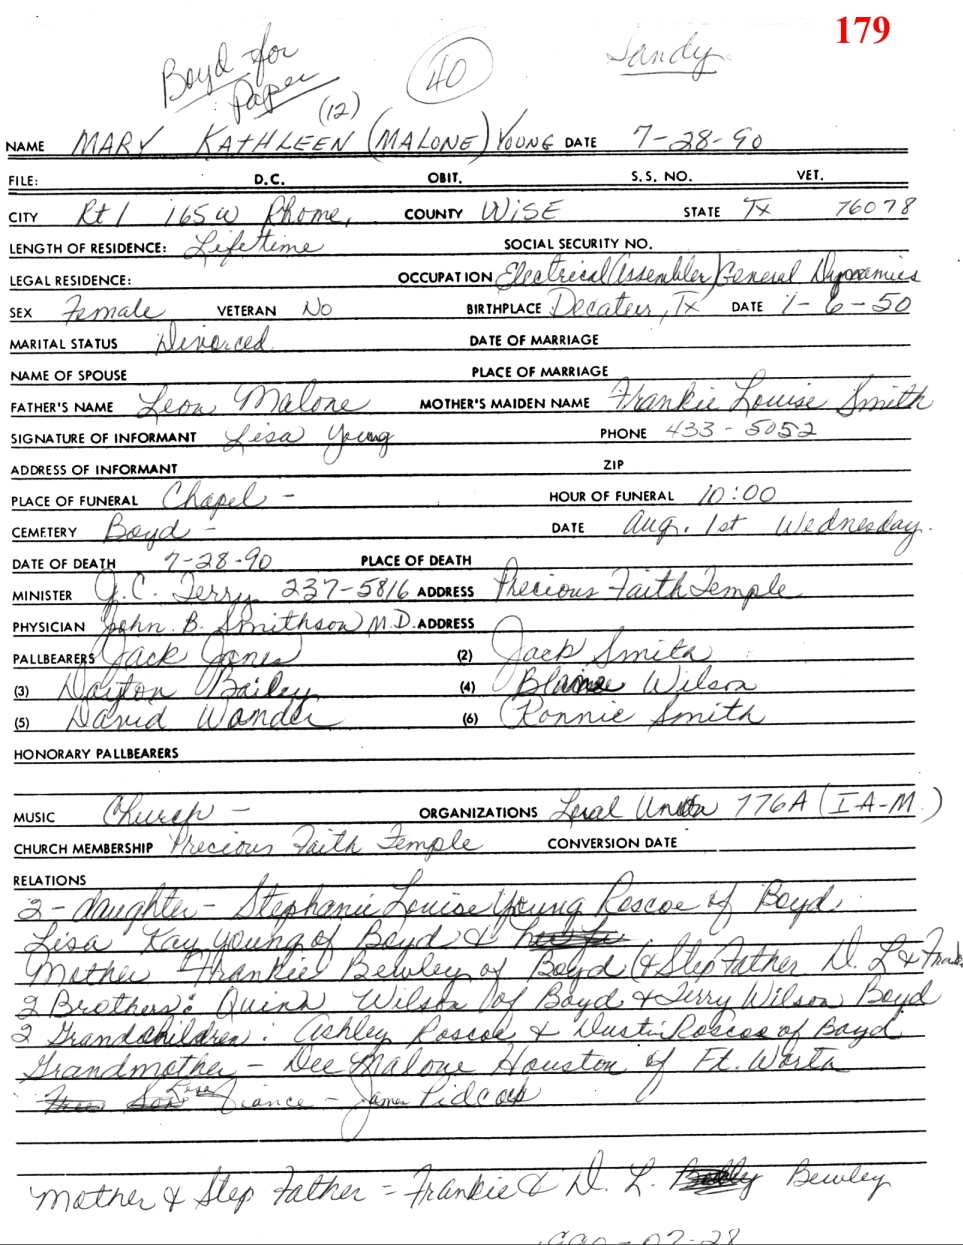 179
Boyd for Paper
40
Sandy
(12)
NAME MARY KATHLEEN (MALONE) YOUNG DATE 7-28-90
FILE: D.C. OBIT. S.S. NO. VET.
CITY Rt 1 165W Rhome, COUNTY WiSE STATE TX 76078
LENGTH OF RESIDENCE: Lifetime SOCIAL SECURITY NO.
LEGAL RESIDENCE: OCCUPATION Electrical (Assembler) General Dynamics
SEX Female VETERAN No BIRTHPLACE Decatur, Tx DATE 1-6-50
MARITAL STATUS Divorced DATE OF MARRIAGE
NAME OF SPOUSE PLACE OF MARRIAGE
FATHER'S NAME Leon Malone MOTHER'S MAIDEN NAME Frankie Louise Smith
SIGNATURE OF INFORMANT Lisa Young PHONE 433-5052
ADDRESS OF INFORMANT ZIP
PLACE OF FUNERAL Chapel - HOUR OF FUNERAL 10:00
CEMETERY Boyd - DATE Aug. 1st Wednesday.
DATE OF DEATH 7-28-90 PLACE OF DEATH
MINISTER J.C. Terry 237-5816 ADDRESS Precious Faith Temple
PHYSICIAN John B. Smithson M.D. ADDRESS
PALLBEARERS Jack Jones (2) Jack Smith
(3) Dayton Bailey (4) Wilson
(5) David Wander (6) Ronnie Smith
HONORARY PALLBEARERS
MUSIC Church - ORGANIZATIONS Local Union 776A (I A-M.)
CHURCH MEMBERSHIP Precious Faith Temple CONVERSION DATE
RELATIONS
2-daughter - Stephanie Louise Young Roscoe of Boyd.
Lisa Kay Young of Boyd &
Mother - Frankie Bewley of Boyd (& Step Father D. L &
2 Brothers: Quinn Wilson of Boyd & Terry Wilson Boyd
2 Grandchildren: Ashley Roscoe & Dustin Roscoe of Boyd
Grandmother - Dee Malone Houston of Ft. Worth
Lisa Fiance - James Pidcock
Mother & Step Father = Frankie & D. L. Bewley